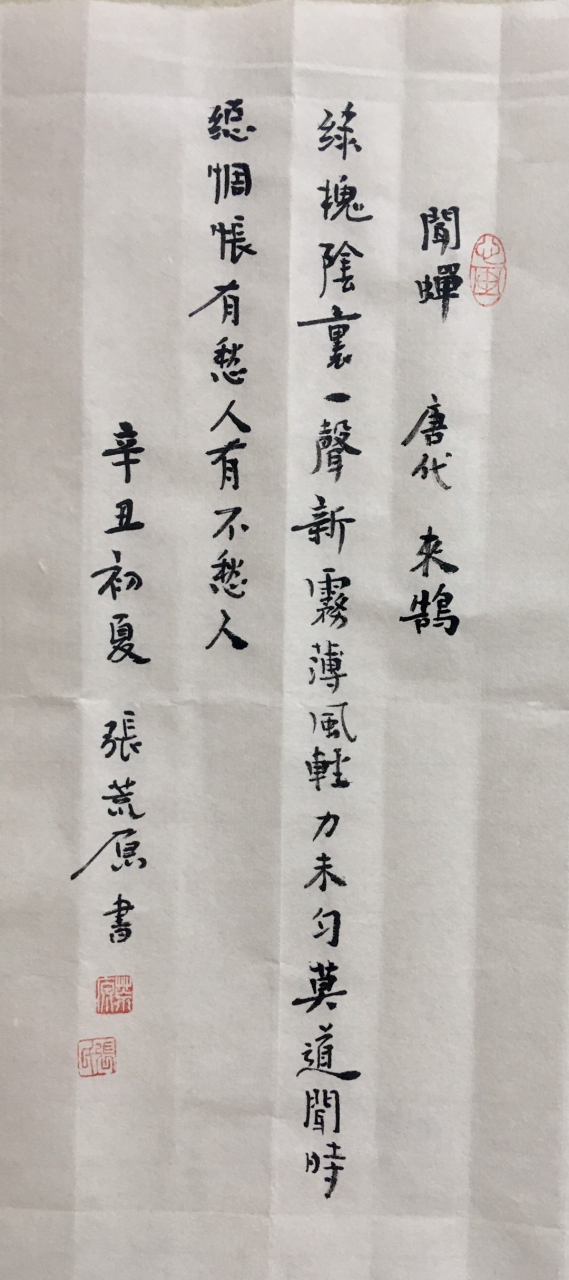 聞蟬 唐代 來鵠
綠槐陰裏一聲新霧薄風輕力未勻莫道聞時
總惆悵有愁人有不愁人
辛丑初夏 張荒原書
荒原